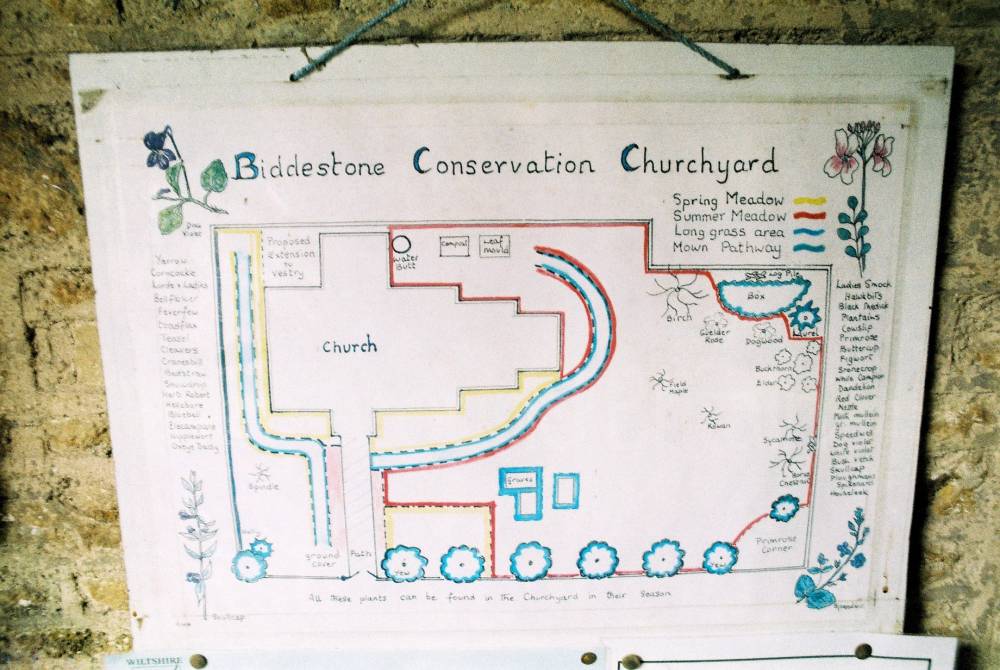 Biddestone Conservation Churchyard
Spring Meadow
Summer Meadow
Long grass area
Mown Pathway
Dog
Violet
Proposed
Extension
to
Vestry
Water
Butt
Compost
Leaf
mould
Log Pile
Box
Birch
Guelder
Rose
Dogwood
Laurel
Buckthorn
Elder
Field
Maple
Rowan
Sycamore
Horse
Chestnut
Church
Graves
Spindle
ground
cover
Path
Yew
Primrose
Corner
Yarrow
Corncockle
Lords & Ladies
Bellflower
Feverfew
Toadflax
Teasel
Cleavers
Cranesbill
Bedstraw
Snowdrop
Herb Robert
Hellebore
Bluebell
Elecampane
Nipplewort
Oxeye Daisy
Ladies Smock
Hawkbits
Black Medick
Plantains
Cowslip
Primrose
Buttercup
Figwort
Stonecrop
White Campion
Dandelion
Red Clover
Nettle
mullein
mullein
Speedwell
Dog violet
White violet
Bush vetch
Skullcap
Ploughmans
Spikenard
Houseleek
Skullcap
Speedwell
All these plants can be found in the Churchyard in their season
WILTSHIRE